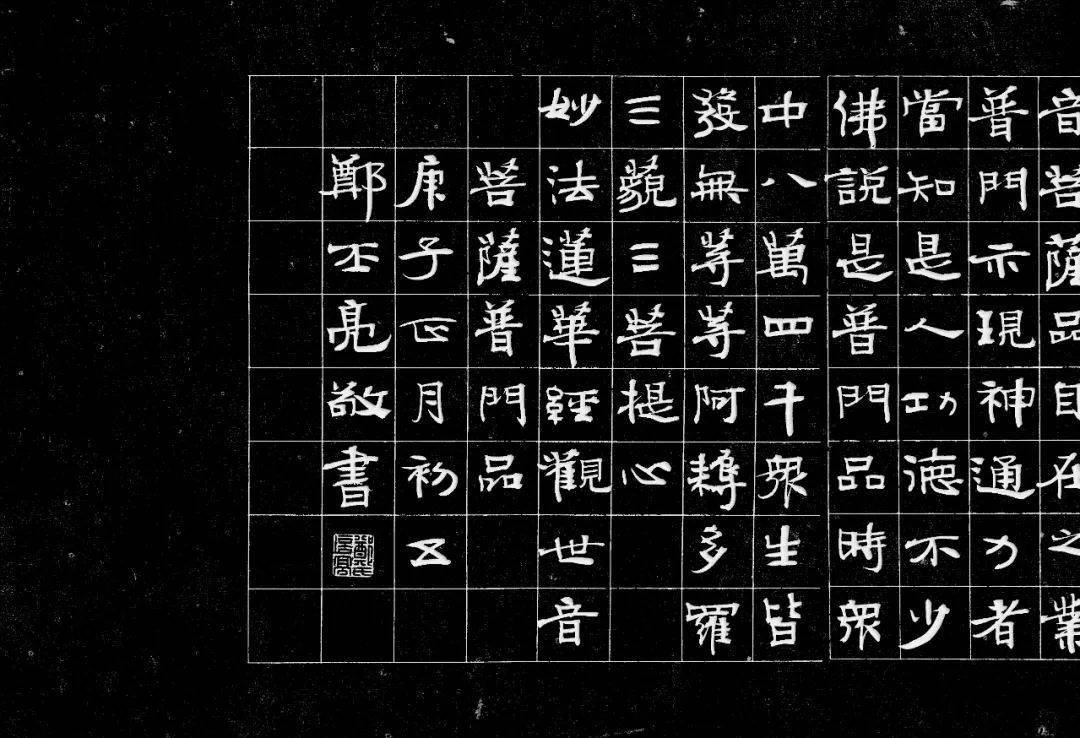 音菩薩品自在之業
普門示現神通力者
當知是人功德不少
佛説是普門品時衆
中八萬四千衆生皆
發無等等阿耨多羅
三藐三菩提心
妙法蓮華經觀世音
菩薩普門品
庚子正月初五
鄭丕亮敬書